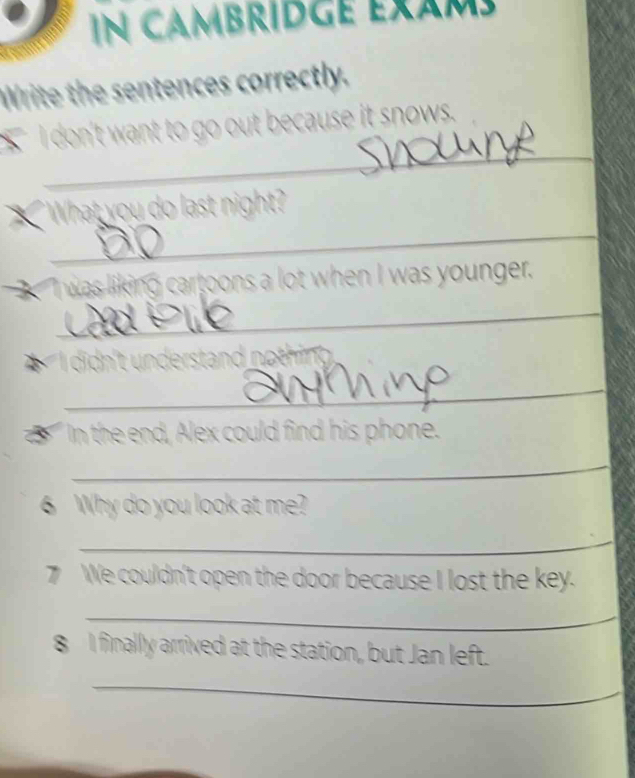 IN CAMBRIDGE EXAMS
Write the sentences correctly.
I don't want to go out because it snows.
What you do last night?
I was liking cartoons a lot when I was younger.
I didn't understand nothing.
In the end, Alex could find his phone.
6 Why do you look at me?
7 We couldn't open the door because I lost the key.
8 I finally arrived at the station, but Jan left.